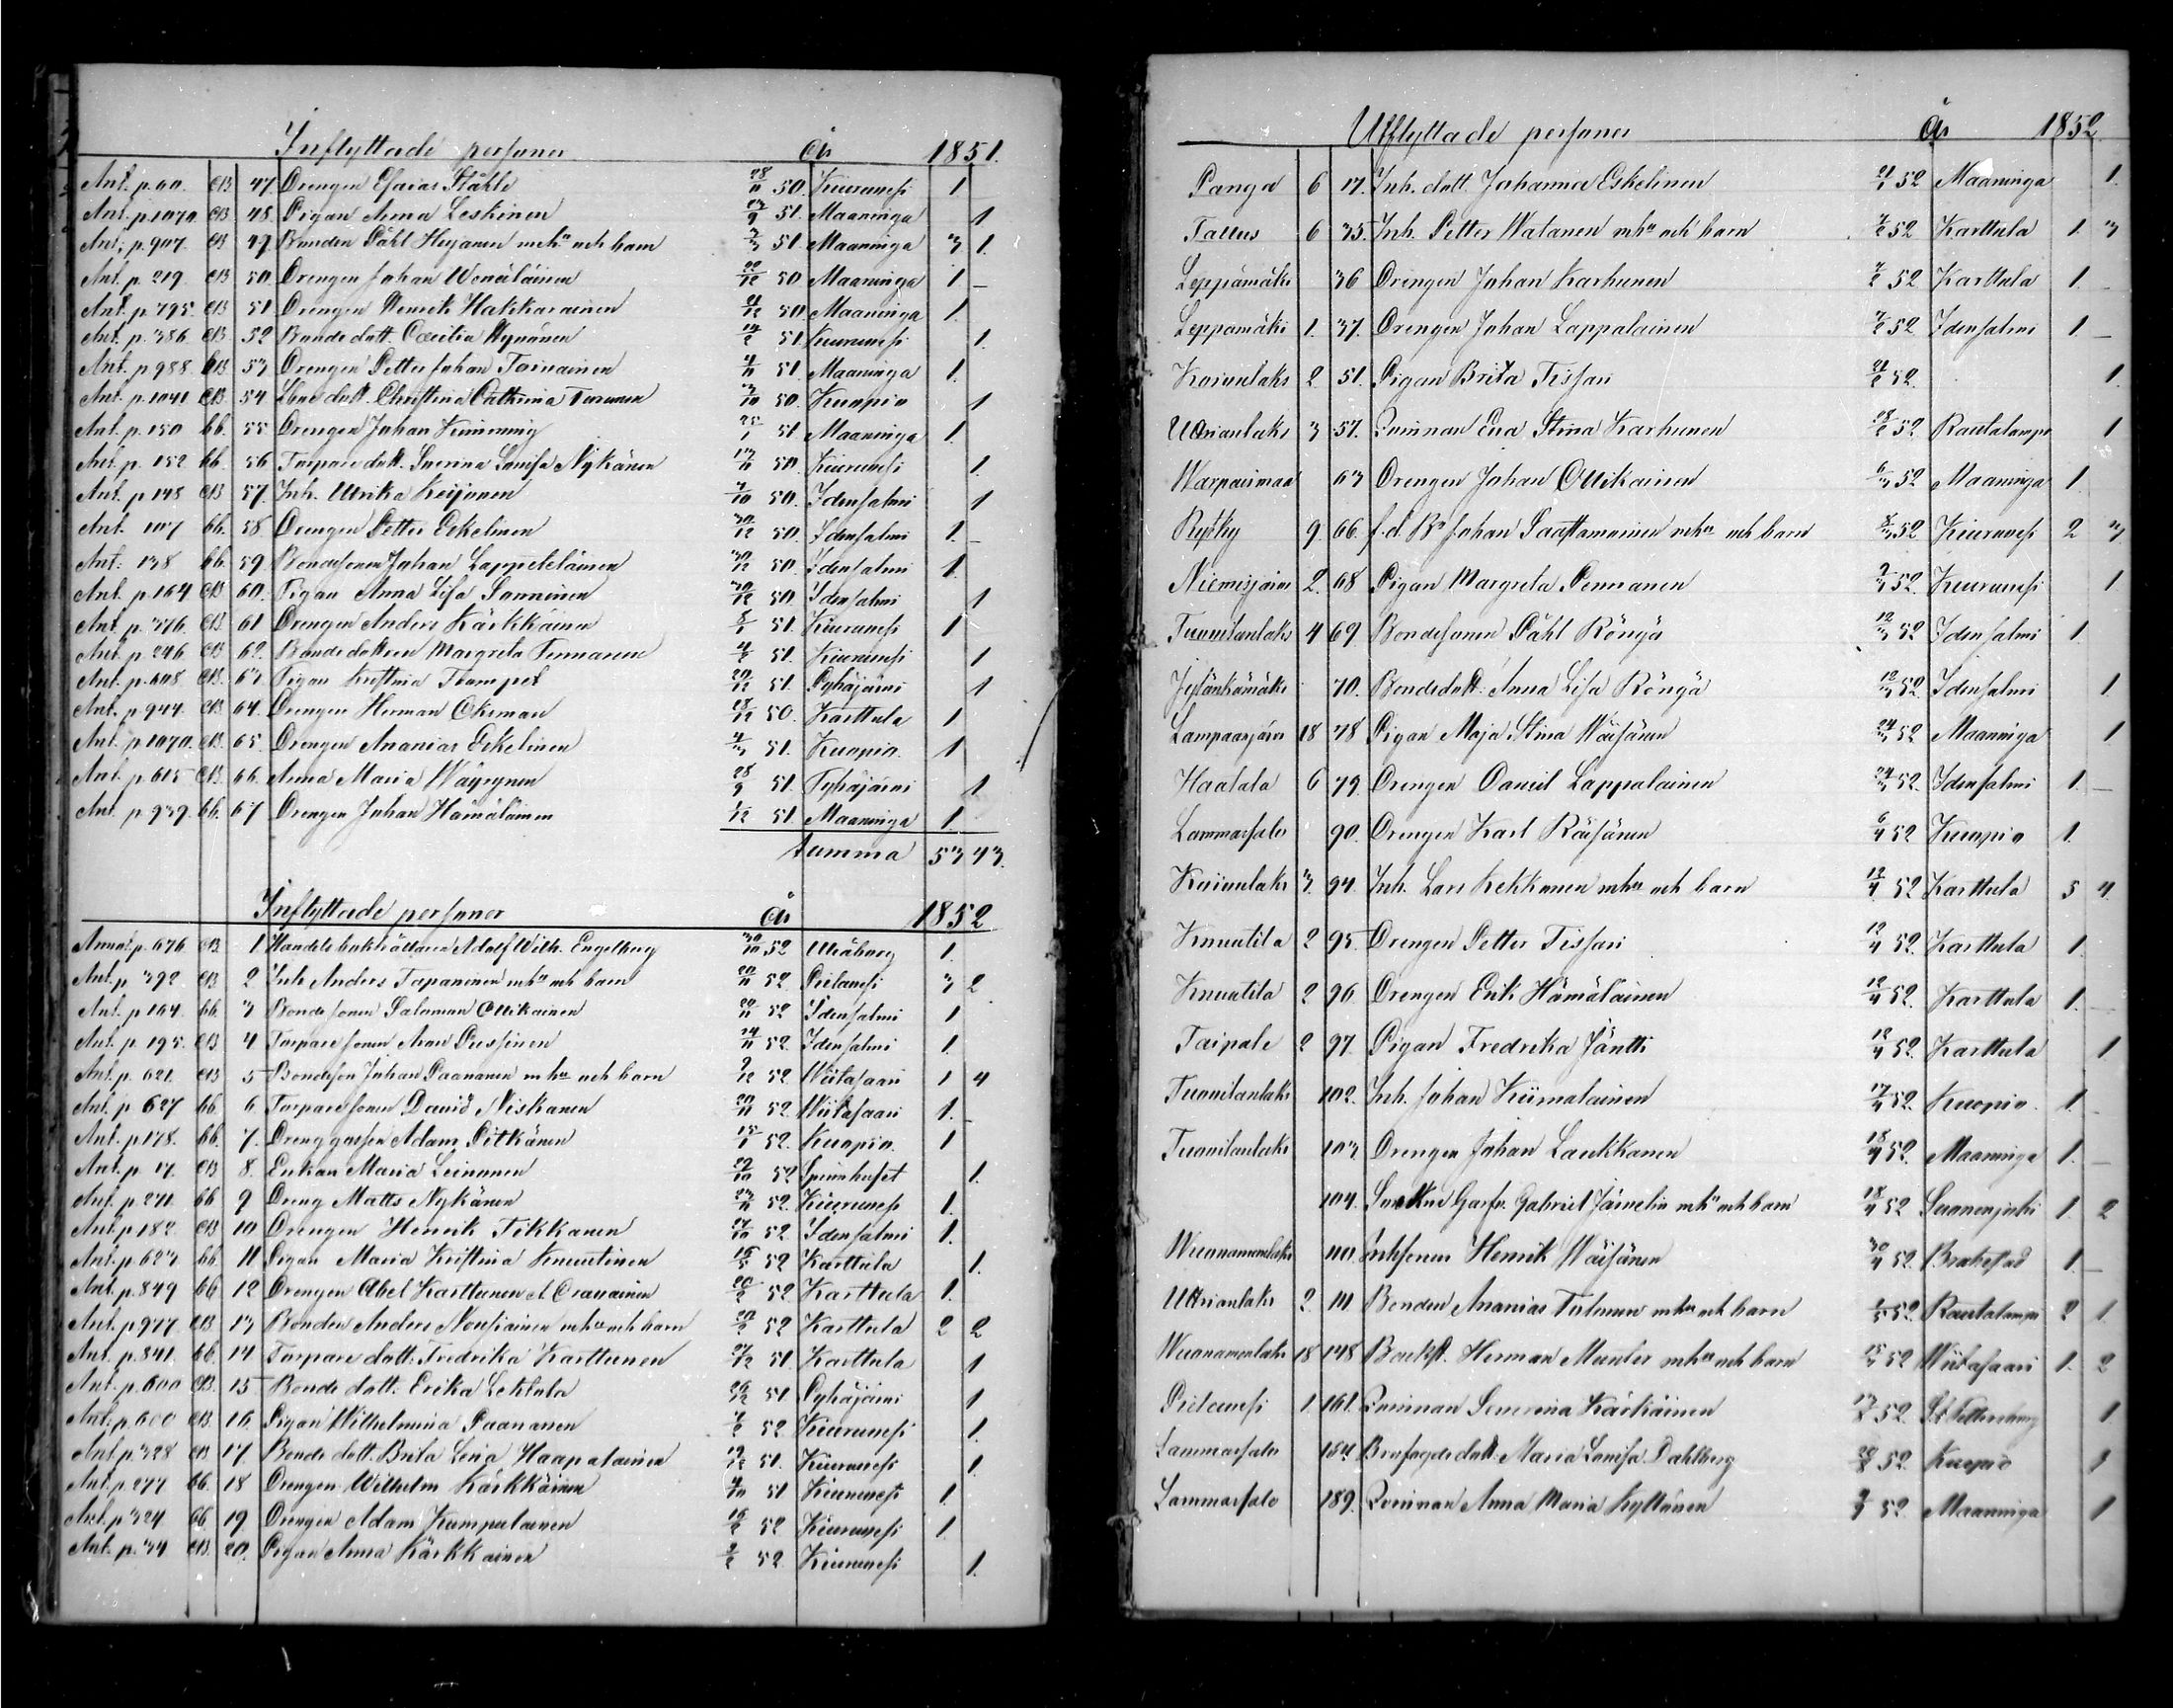 Inflyttade personer år 1851.
Ant. p. 60. 47. Drengen Esaias Ståhle 28/11 50. Kiuruvesi 1
Ant. p. 1070 48. Pigan Anna Leskinen 51. Maaninga 1
Ant. p. 907 49 Bonden Påhl Heyanen m hu och barn 51. Maaninga 3 1.
Ant. p. 219 50. Drengen Johan Wenäläinen 22/12 50 Maaninga 1 –
Ant. p. 795. 51 Drengen Henrik Hakkarainen 21/12 50 Maaninga 1.
Ant. p. 386 52 Bonde dott. Cæcilia Hynänen 51. Kiuruvesi 1.
Ant. p. 988 53 Drengen Petter Johan Toivainen 51. Maaninga 1.
Ant. p. 1041 54 dott. Christina Cathrina Turunen 3/10 50. Kuopio 1
Ant. p. 150 bb. 55 Drengen Johan 25/1 51. Maaninga 1.
Ant. p. 152 bb. 56 Torpare dott. Severina Lovisa Nykänen 13/11 50. Kiuruvesi 1.
Ant. p. 148 57. Inh. Ulrika Keijonen 7/10 50. Idensalmi 1
Ant. 107 bb. 58 Drengen Petter Eskelinen 30/12 50. Idensalmi 1. –
Ant. 138 bb. 59 Bondesonen Johan Lappeteläinen 30/12 50. Idensalmi 1.
Ant. p. 164 60. Pigan Anna Lisa Sanninen 30/12 50. Idensalmi 1
Ant. p. 376. 61 Drengen Anders Kärkkäinen 8/1 51. Kiuruvesi 1
Ant. p. 246 62. Bonde dottren Margreta Tenmanen 4/2 51. Kiuruvesi 1
Ant. p. 608 63. Pigan Kristina Trampet 20/12 51. Pyhäjärvi 1
Ant. p. 944. 64. Drengen Herman Oksman 28/12 50. Karttula 1
Ant. p. 1070. 65. Drengen Ananias Eskelinen 4/3 51. Kuopio. 1
Ant. p. 615 66. Anna Maria Wäyrynen 28/9 51. Pyhäjärvi 1
Ant. p. 939. bb. 67 Drengen Johan Hämäläinen 51 Maaninga 1.
Summa 53 43.
Inflyttade personer år 1852
Annot. p. 676 1 Handels bokhållaren Adolf Wilh. Engelberg 30/10 52 Uleåborg 1.
Ant. p. 392 2 Inh Anders Tapaninen m hu och barn 20/11 52. Pielavesi 3 2
Ant. p. 164. bb. 3 Bonde sonen Salomon Ollikainen 29/11 52 Idensalmi 1
Ant. p. 195. 4 Torpare sonen Aron Pussinen 24/11 52. Idensalmi 1.
Ant. p. 621. 5 Bondeson Johan Paananen m hu och barn 9/12 52 Wiitasaari 1 4
Ant. p. 627 bb. 6 Torparesonen David Niskanen 20/11 52. Wiitasaari 1. –
Ant. p. 178. bb. 7. Drenggossen Adam Pitkänen 15/1 52. Kuopio. 1
Ant. p. 17. 8. Enkan Maria Leinonen 29/10 52 Spinnhuset 1.
Ant. p. 271. bb 9 Dreng Matts Nykänen 23/11 52. Kiuruvesi 1.
Ant. p. 182. 10 Drengen Henrik Tikkanen 27/10 52. Idensalmi 1.
Ant. p. 623 bb. 11 Pigan Maria Kristina Knuutinen 15/5 52 Karttula 1.
Ant. p. 849 bb 12 Drengen Abel Karttunen el. Oravainen 20/2 52. Karttula 1.
Ant. p. 977 13 Bonden Anders Nousiainen m hu och barn 20/2 52 Karttula 2 2
Ant. p. 841. bb. 14 Torpare dott. Fredrika Karttunen 27/12 51. Karttula 1
Ant. p. 600 15 Bonde dott. Erika Lehtola 26/12 51. Pyhäjärvi 1
Ant. p. 600 16. Pigan Wilhelmina Paananen 52 Kiuruvesi 1.
Ant. p. 328 17. Bonde dott. Brita Lena Haapalainen 19/12 51. Kiuruvesi 1.
Ant. p. 277 bb. 18 Drengen Wilhelm Kärkkäinen 4/10 51 Kiuruvesi 1.
Ant. p. 324 bb 19 Drengen Adam Kumpulainen 19/2 52 Kiuruvesi 1.
Ant. p. 34 20. Pigan Anna Kärkkäinen 2/2 52. Kiuruvesi 1.
Utflyttade personer år 1852
Panga 6 17. Inh. dott. Johanna Eskelinen 21/1 52 Maaninga 1.
Tallus 6 35. Inh. Petter Watanen m hu och barn 52 Karttula 1. 3
Leppämäki 36 Drengen Johan Karhunen 52 Karttula 1. –
Leppämäki 1. 37. Drengen Johan Lappalainen 52 Idensalmi 1. –
Koivulaks 2 51. Pigan Brita Tissari 21/2 52. 1.
Utrianlaks 3 57. Qvinnan Eva Stina Karhunen 28/2 52 Rautalampi 1
Warpaismaa 63 Drengen Johan Ollikainen 6/3 52 Maaninga 1.
Rytky 9. 66. f.d. Bn Johan Saastamoinen m hu och barn 8/3 52. Kiuruvesi 2 3
Niemisjärvi 2. 68 Pigan Margreta Pennanen 52. Kiuruvesi 1.
Tuovilanlaks 4 69 Bondesonen Påhl Röngä 12/3 52 Idensalmi 1.
Jylänkämäki 70. Bondedott: Anna Lisa Röngä 12/3 52. Idensalmi 1
Lampaanjärvi 18 78 Pigan Maja Stina Wäisänen 24/3 52 Maaninga 1
Haatala 6 79. Drengen Daniel Lappalainen 24/3 52. Idensalmi 1. –
Lammassalo 90. Drengen Karl Räisänen 6/4 52 Kuopio 1.
Koivulaks 3 94. Inh. Lars Kekkonen m hu och barn 12/4 52 Karttula 5 4
Knuutila 2 95. Drengen Petter Tissari 12/4 52. Karttula 1.
Knuutila 2 96. Drengen Erik Hämäläinen 12/4 52. Karttula 1.
Taipale 2 97. Pigan Fredrika Jäntti 12/4 52. Karttula 1
Tuovilanlaks 102. Inh. Johan Kiimalainen 17/4 52. Kuopio. 1.
Tuovilanlaks 103. Drengen Johan Laukkanen 18/4 52. Maaninga 1. –
104. Gabriel Järnelin m hu och barn 18/4 52 Suonenjoki 1. 2
Wuonamonlaks 110. Inhsonen Henrik Wäisänen 30/4 52. Brahestad 1. –
Utrianlaks 2. 111. Bonden Ananias Tulunen m hu och barn 52. Rautalampi 2 1
Wuonamonlaks 18 148 Herman Munter m hu och barn 52 Wiitasaari 1. 2
Pielavesi 1. 161. Qvinnan Severina Kärkäinen 52. St Pettersburg 1
Lammassalo dott. Maria Lovisa Dahlberg 52. Kuopio 1
Lammassalo 189. Qvinnan Anna Maria Kyllönen 52. Maaninga 1